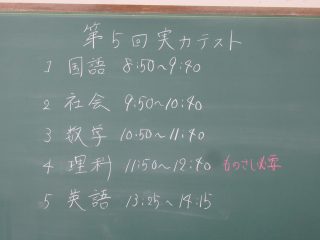 第5回実力テスト
1 国語 8:50~9:40
2 社会 9:50~10:40
3 数学 10:50~11:40
4 理科 11:50~12:40 ものさし必要
5 英語 13:25~14:15